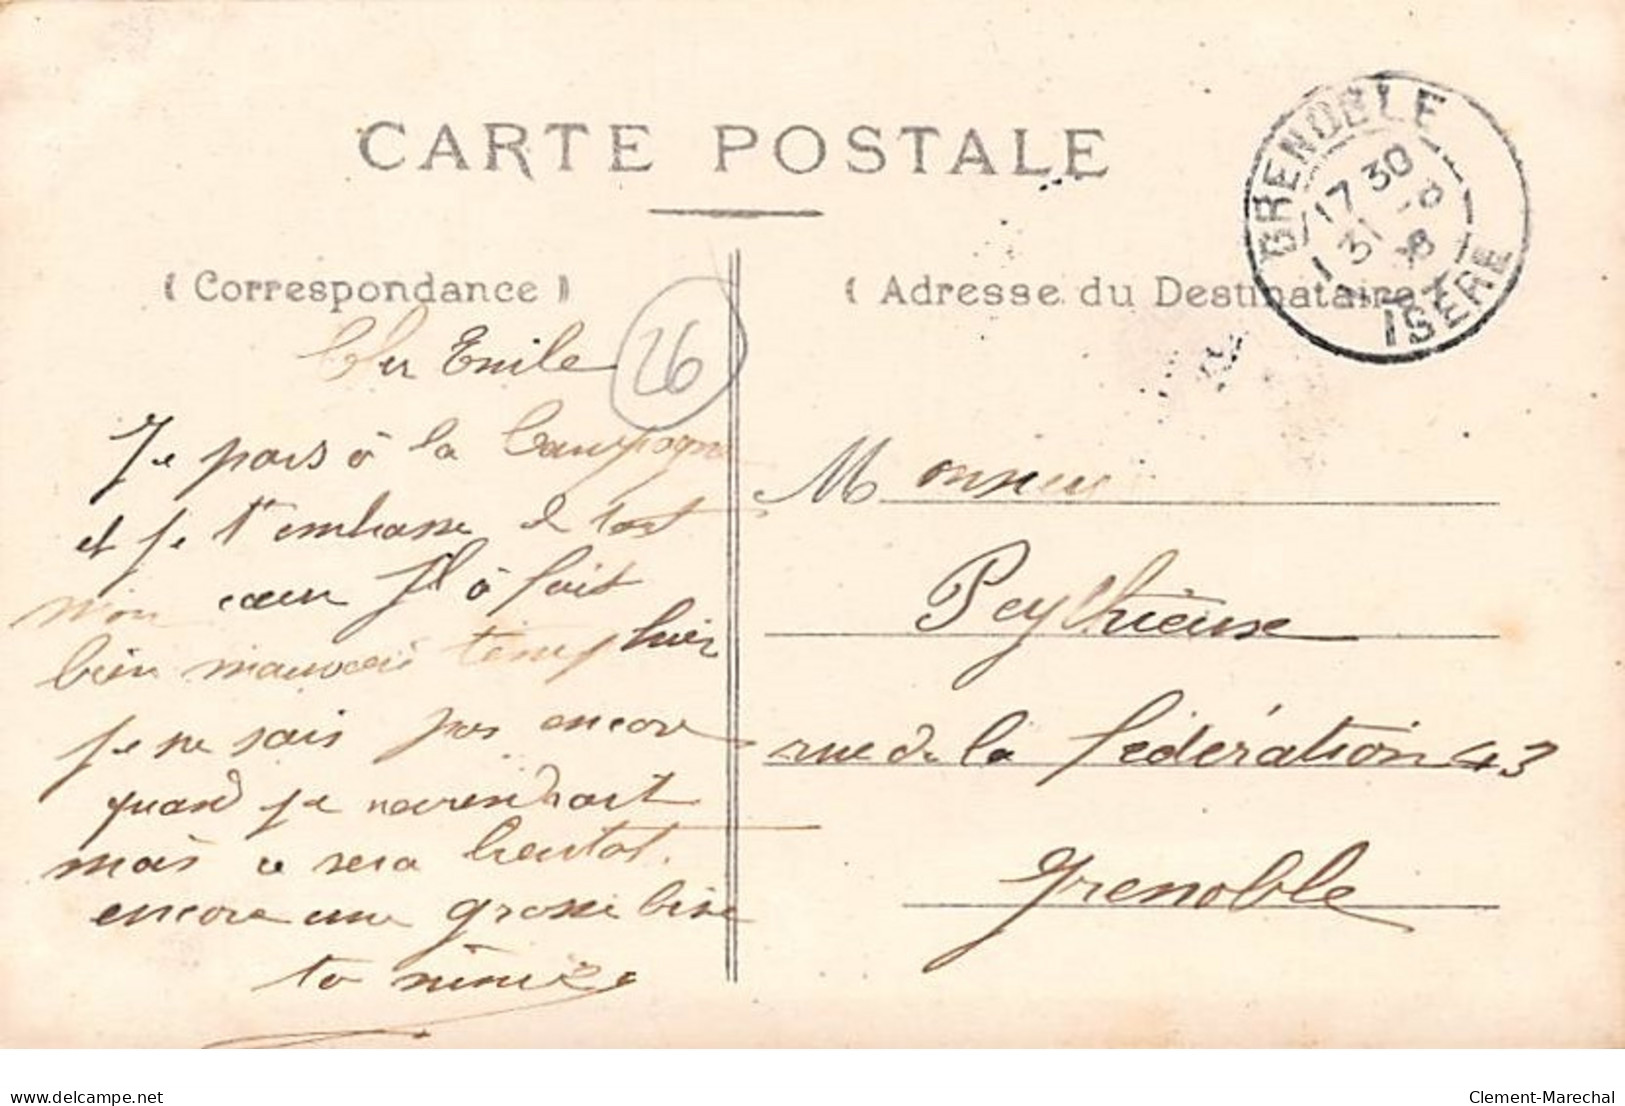 CARTE POSTALE
( Correspondance )
( Adresse du Destinataire )
GRENOBLE
17 30
31 -8
08
ISERE
26
Cher Emile
Je pars à la Campagne
et je t'embrasse de tout
mon cœur Il à fait
bien mauvais temp hier
je ne sais pas encore
quand je
mais ce sera bientot.
encore une grosse bise
ta
Monsieur
rue de la fédération 43
Grenoble
delcampe.net
Clement-Marechal